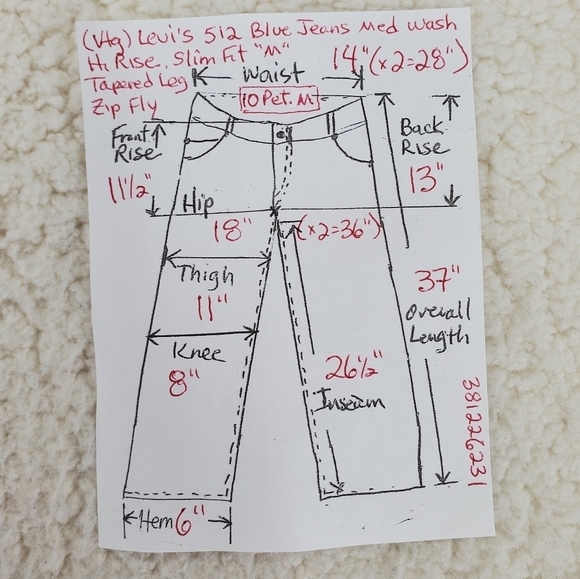 (Vtg) Levi's 512 Blue Jeans Med Wash
Hi Rise, Slim Fit "M"
14" (x2=28")
Tapered Leg
Waist
Zip Fly
10 Pet. M
Front Rise
11½"
Back Rise
13"
Hip
18" (x2=36")
Thigh
11"
37"
Overall Length
Knee
8"
26½"
Inseam
381226231
Hem 6"